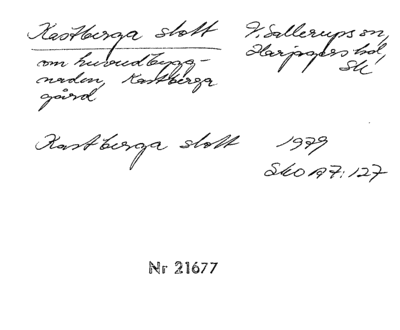 Kastberga slott
om huvudbygg-
naden, Kastberga
gård
V. Sallerups sn,
Harjagers hd,
Sk
Kastberga slott 1979
Sko A7:127
Nr 21677